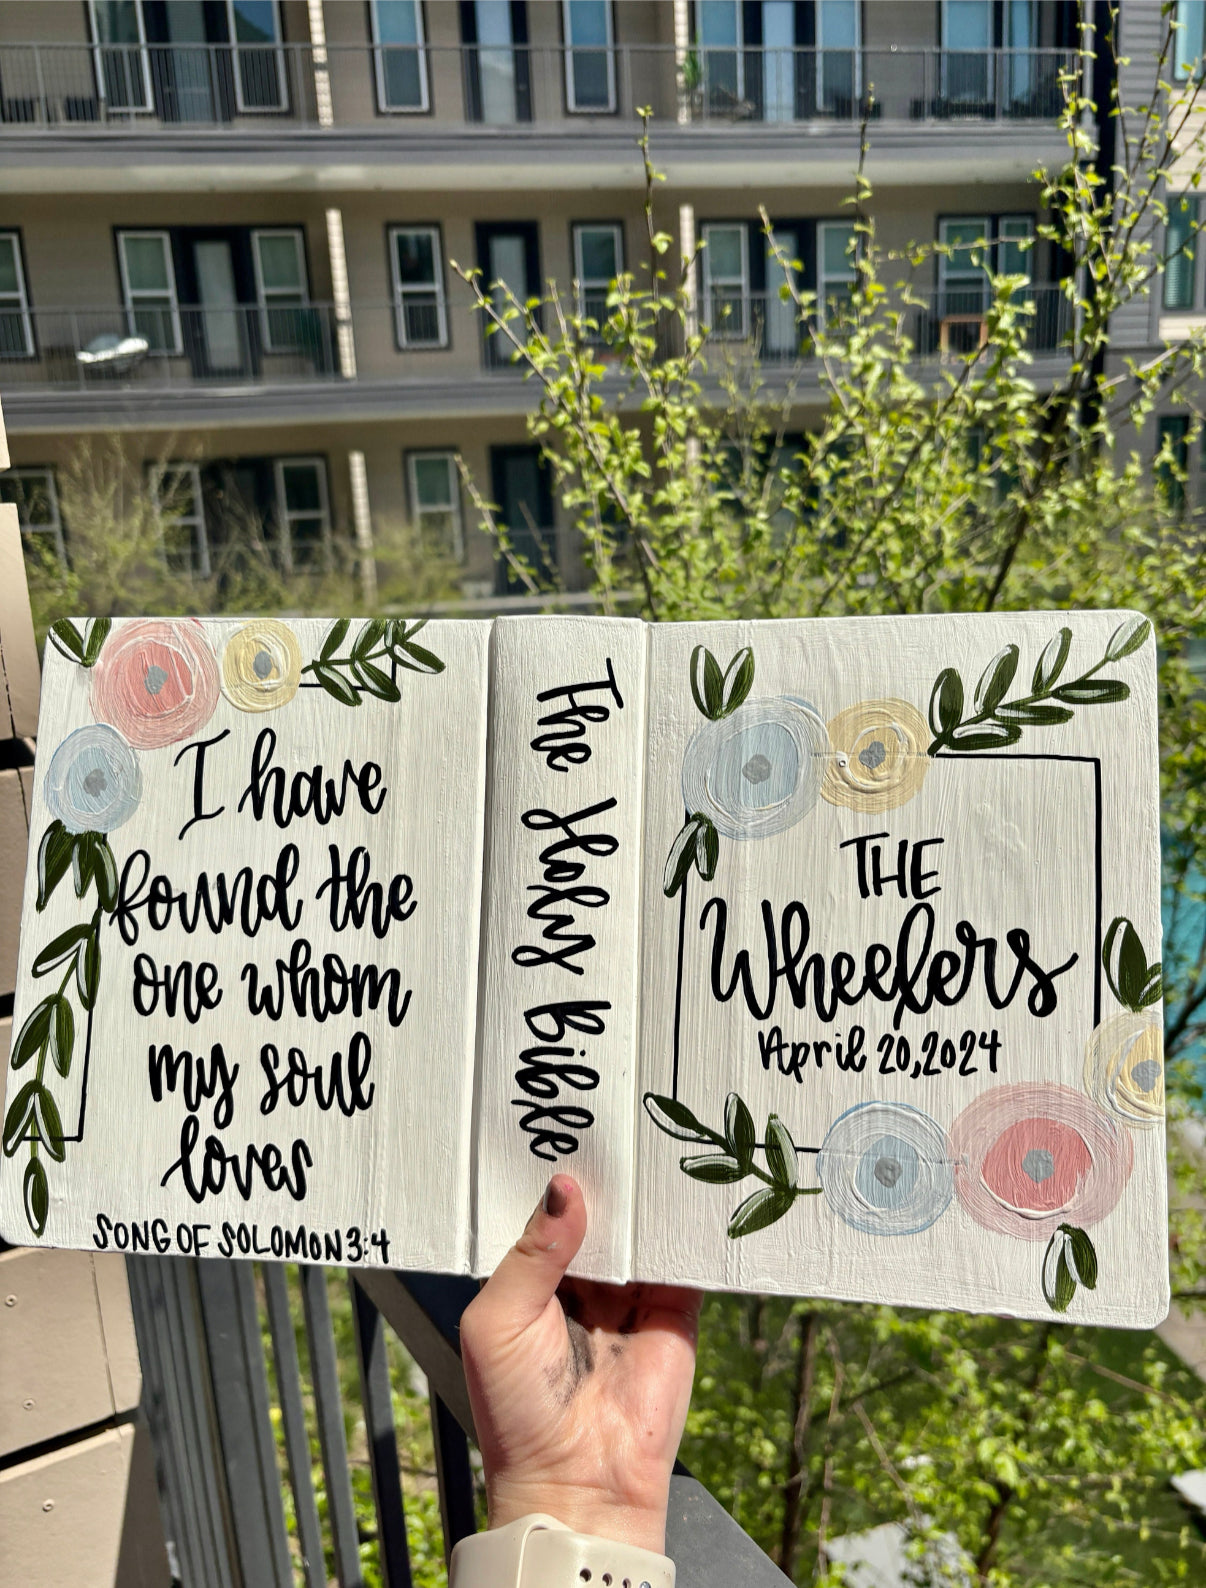 I have
found the
one whom
my soul
loves
SONG OF SOLOMON 3:4
The Holy Bible
THE
Wheelers
April 20,2024